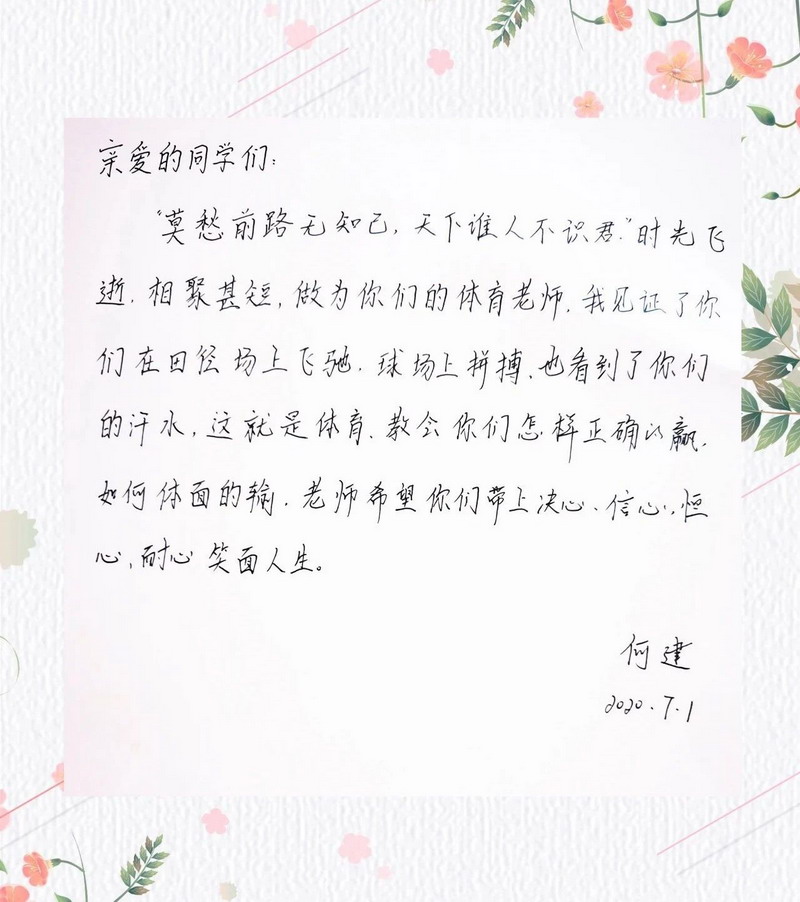 亲爱的同学们:
"莫愁前路无知己,天下谁人不识君."时光飞
逝.相聚甚短,做为你们的体育老师.我见证了你
们在田径场上飞驰.球场上拼搏、也看到了你们
的汗水,这就是体育.教会你们怎样正确的赢.
如何体面的输.老师希望你们带上决心、信心,恒
心,耐心笑面人生。
何建
2020.7.1